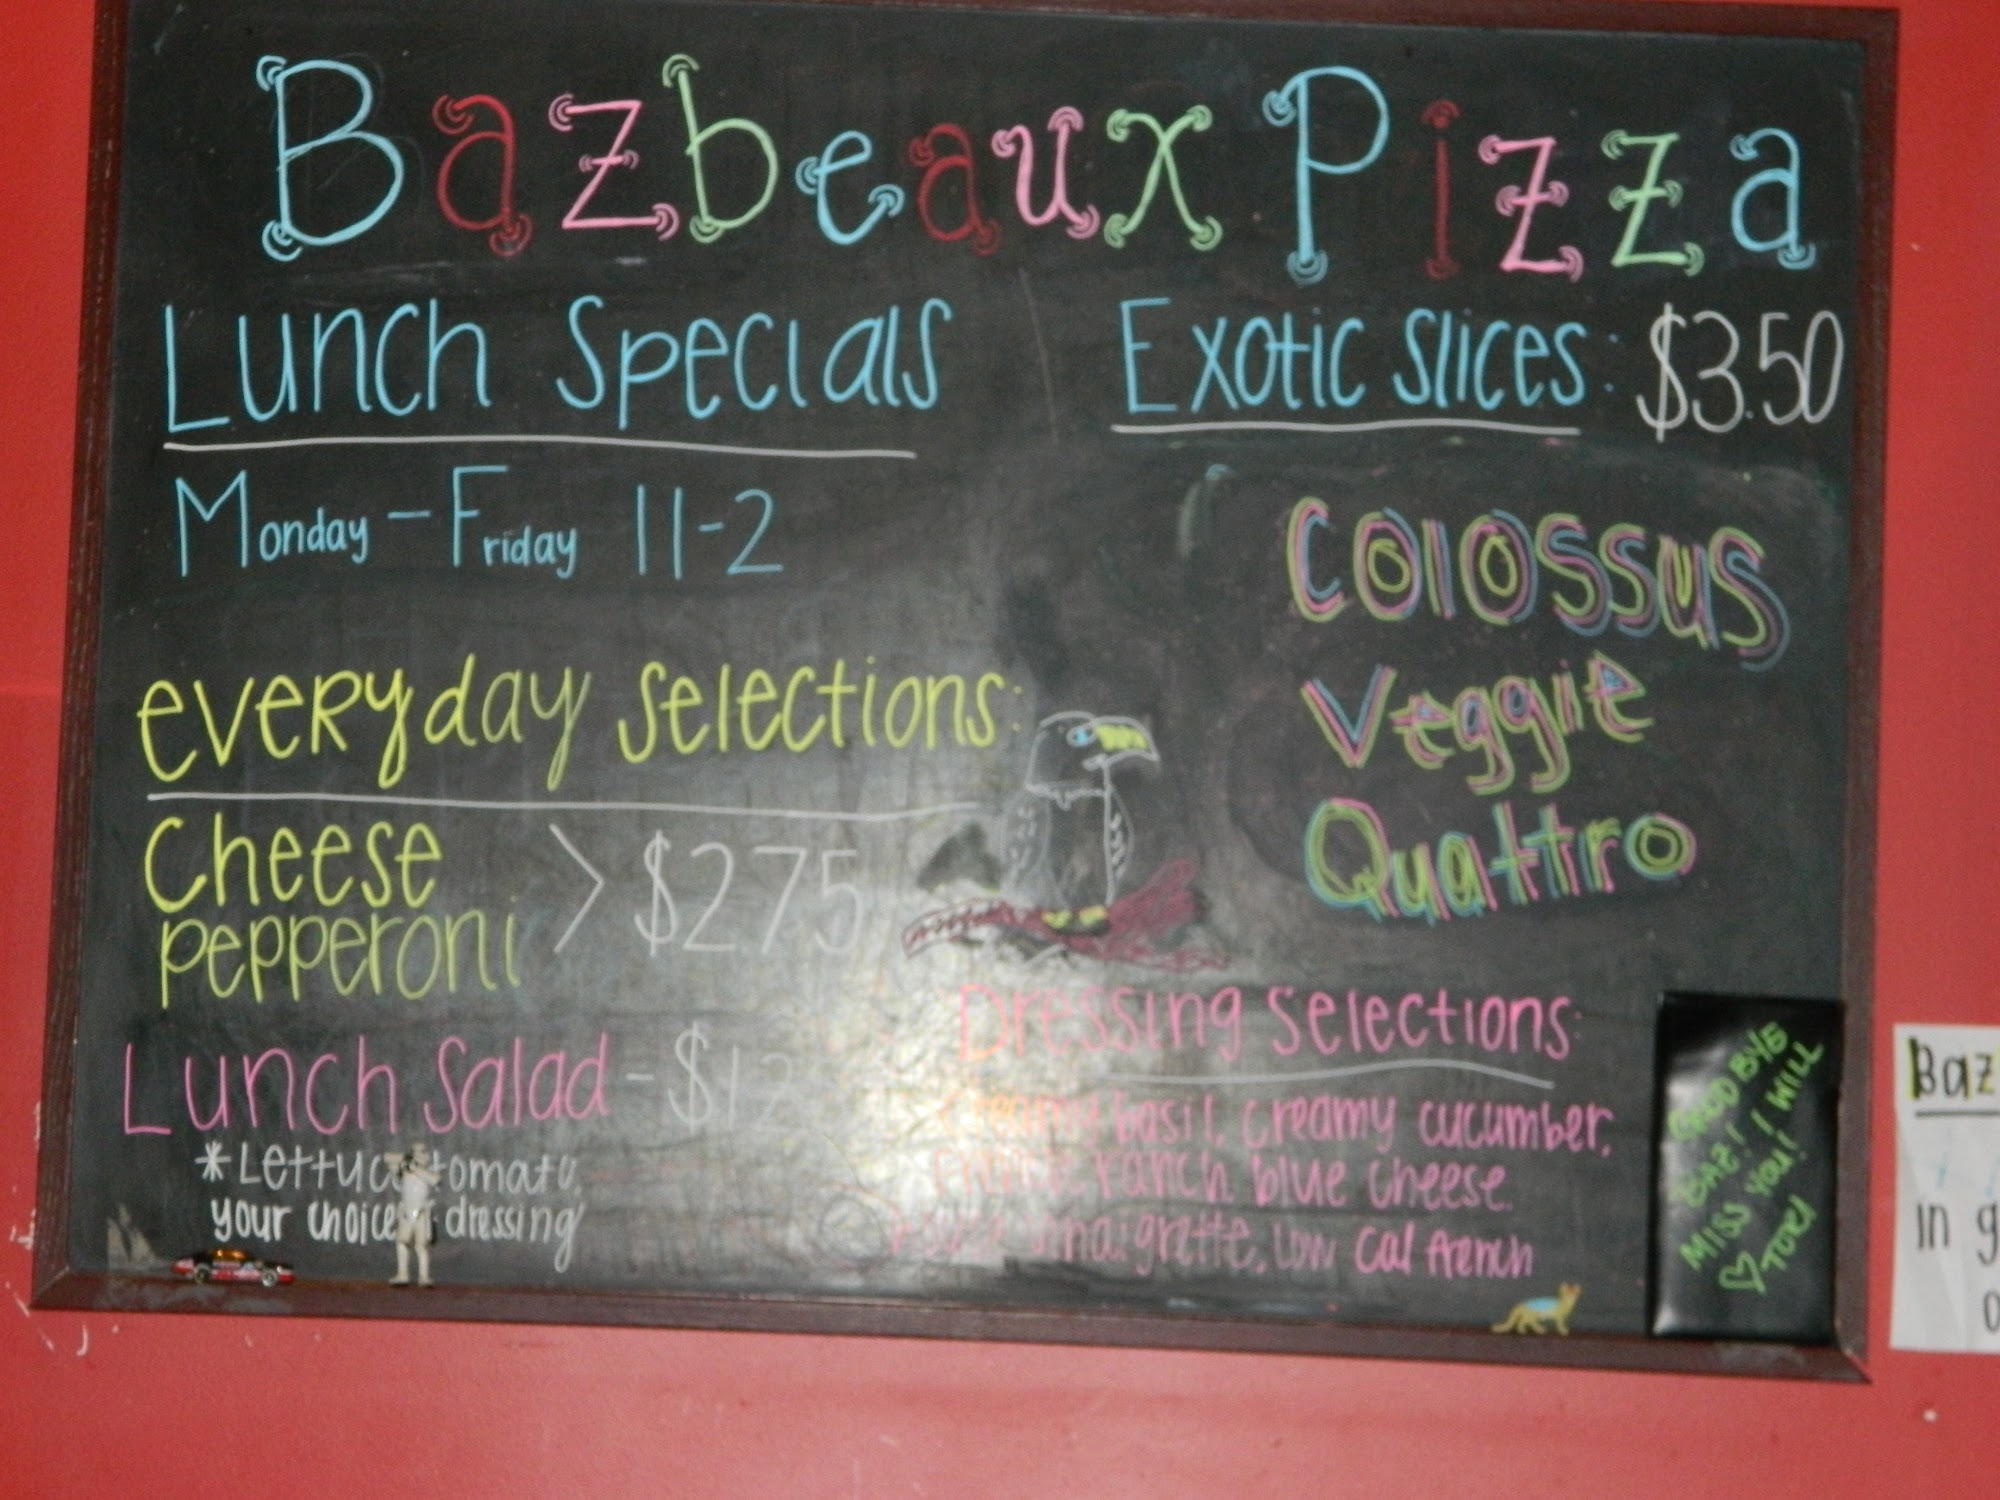 Bazbeaux Pizza
Lunch Specials
Monday - Friday 11-2
everyday selections:
Cheese
pepperoni > $2.75
Lunch Salad -
*Lettuce tomato,
your choice dressing
Exotic Slices: $3.50
Colossus
Veggie
Quattro
Dressing Selections:
creamy basil, creamy cucumber,
ranch, blue cheese
vinaigrette, Low Cal french
GOOD BYE
BAZ! I WILL
MISS YOU!
♡ TORI
Baz
in g
o